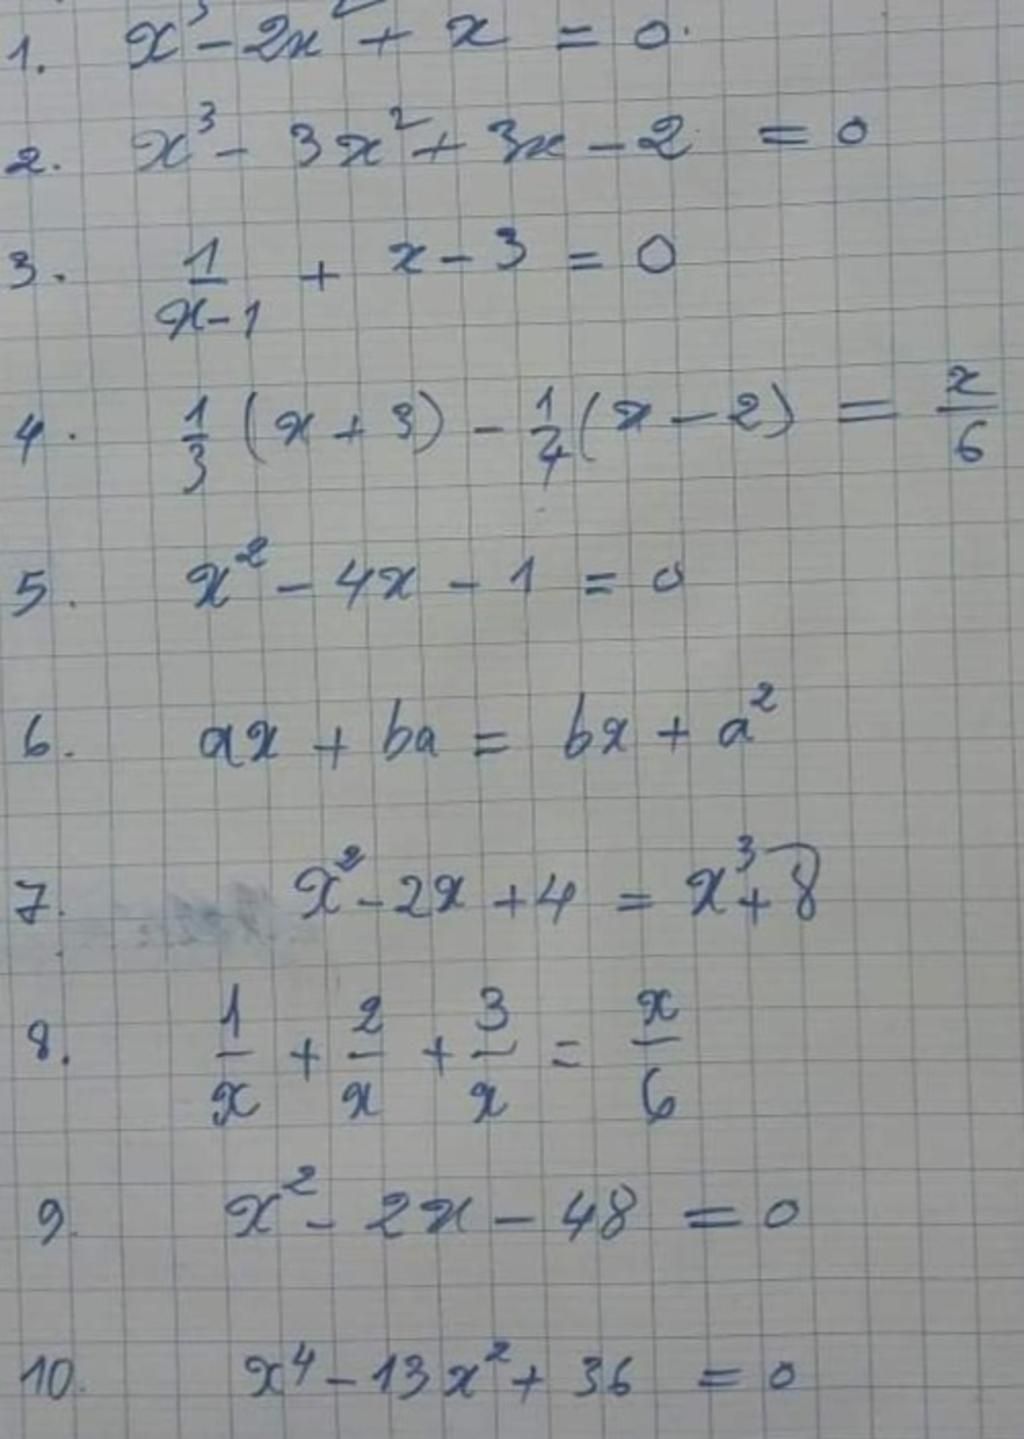 1. x³ - 2x² + x = 0.
2. x³ - 3x² + 3x - 2 = 0
3. 1/(x-1) + x - 3 = 0
4. 1/3 (x + 3) - 1/4 (x - 2) = x/6
5. x² - 4x - 1 = 0
6. ax + ba = bx + a²
7. x² - 2x + 4 = x³ + 8
8. 1/x + 2/x + 3/x = x/6
9. x² - 2x - 48 = 0
10. x⁴ - 13x² + 36 = 0